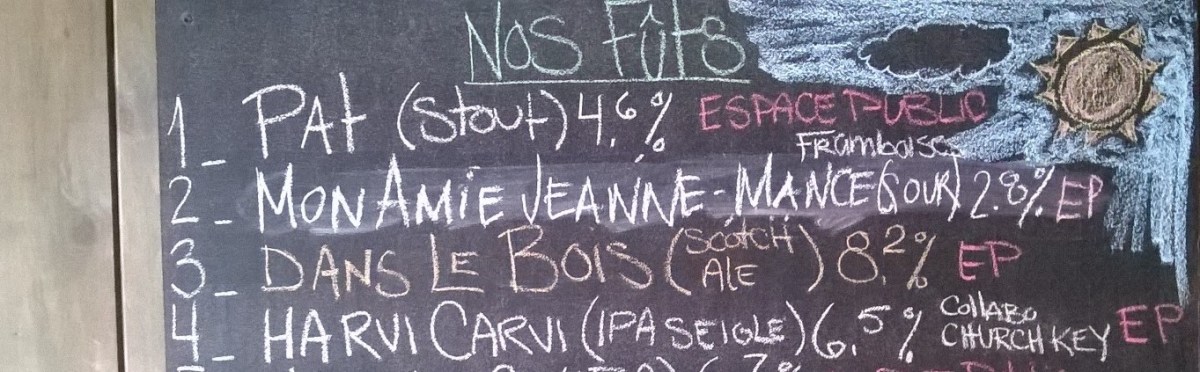 NOS FÛTS
1_ PAT (Stout) 4,6% ESPACE PUBLIC
Framboises
2_ MON AMIE JEANNE-MANCE (SOUR) 2.8% EP
3_ DANS LE BOIS (SCOTCH ALE) 8,2% EP
4_ HARVI CARVI (IPA SEIGLE) 6,5% COLLABO CHURCH KEY EP